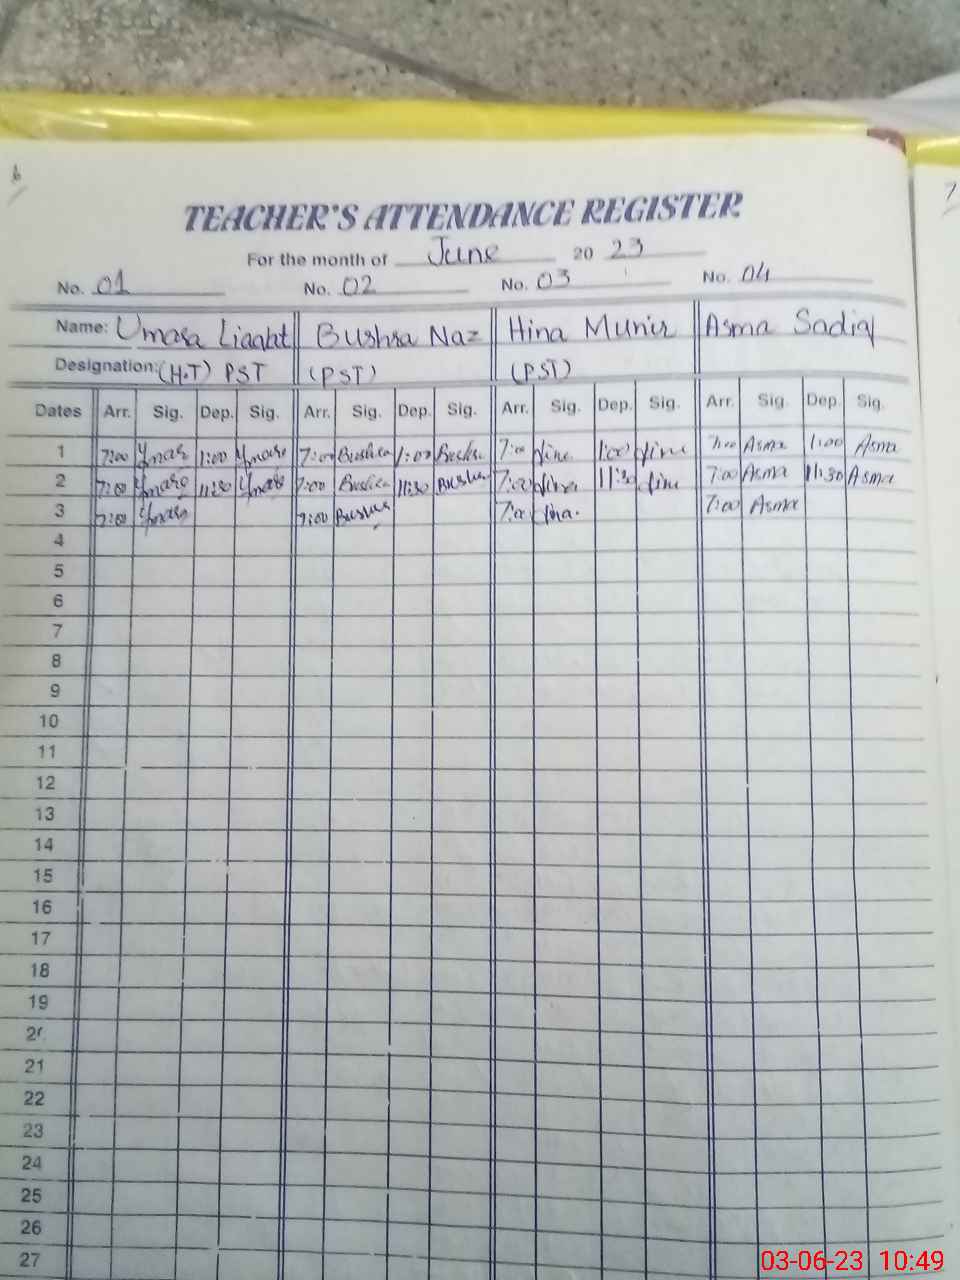 6
7
TEACHER'S ATTENDANCE REGISTER
For the month of June 20 23
No. 01 No. 02 No. 03 No. 04
Name: Umara Liaqat Bushra Naz Hina Munir Asma Sadiq
Designation: (H.T) PST (PST) (PST)
Dates Arr. Sig. Dep. Sig. Arr. Sig. Dep. Sig. Arr. Sig. Dep. Sig. Arr. Sig. Dep. Sig.
1 7:00 1:00 7:00 Bushra 1:00 7:00 1:00 7:00 Asma 1:00 Asma
2 7:00 11:30 7:00 11:30 Bushra 7:00 11:30 7:00 Asma 11:30 Asma
3 7:00 7:00 Bushra 7:00 7:00 Asma
4
5
6
7
8
9
10
11
12
13
14
15
16
17
18
19
20
21
22
23
24
25
26
27
03-06-23 10:49